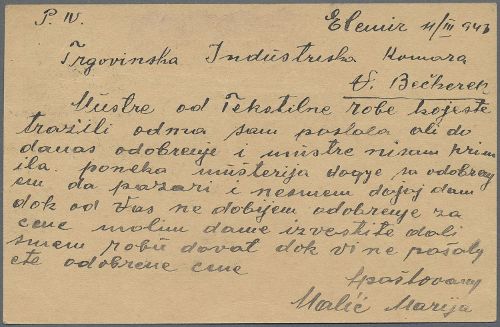 P. N.
Elemir 11/III 943
Trgovinska Industriska Komora
V. Bečkerek
Mustre od Tekstilne robe kojeste
tražili odma sam poslala ali do
danas odobrenje i mustre nisam prim
ila. poneka mušterija dogje sa odobrenj
em da pazari i nesmem da joj dam
dok od Vas ne dobijem odobrenje za
cene molim dame izvestite dali
smem robu davat dok vi ne pošalj
ete odobrene cene
Spaštovanj
Malić Marija